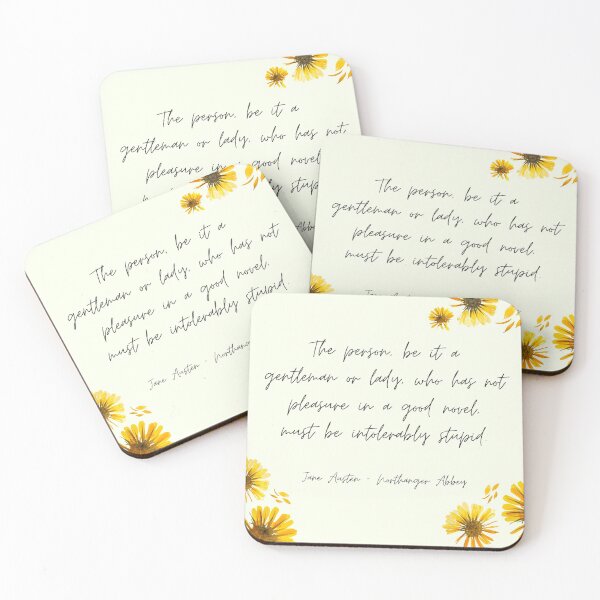 The person, be it a
gentleman or lady, who has not
pleasure in a good novel,
stup
Ab
The person, be it a
gentleman or lady, who has not
pleasure in a good novel,
must be intolerably stupid
Jane Austen
The person, be it a
gentleman or lady, who has not
pleasure in a good novel,
must be intolerably stupid.
Jane Austen - Northang
The person, be it a
gentleman or lady, who has not
pleasure in a good novel,
must be intolerably stupid
Jane Austen - Northanger Abbey